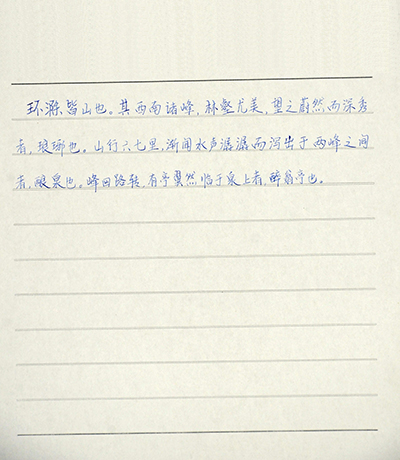 环滁皆山也。其西南诸峰,林壑尤美,望之蔚然而深秀
者,琅琊也。山行六七里,渐闻水声潺潺而泻出于两峰之间
者,酿泉也。峰回路转,有亭翼然临于泉上者,醉翁亭也。